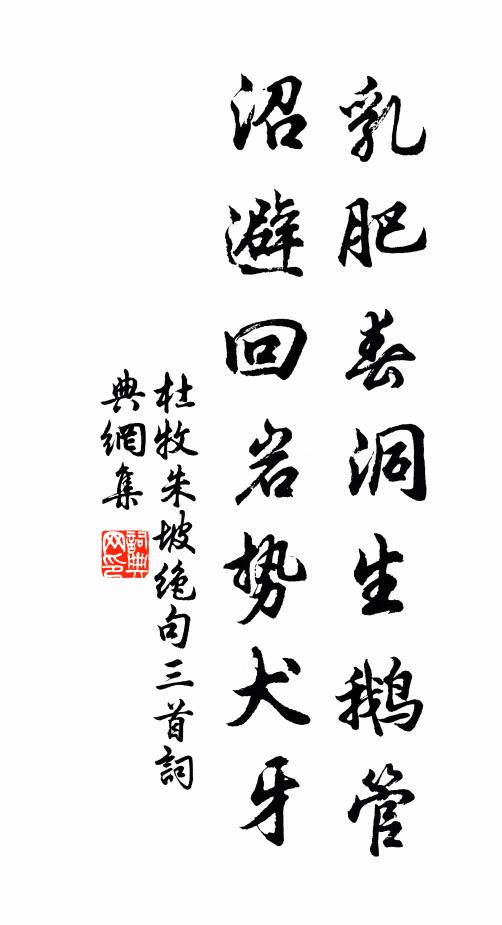 乳肥春洞生鹅管
沼避回岩势犬牙
杜牧朱坡绝句三首詞
典網集
詞典网印